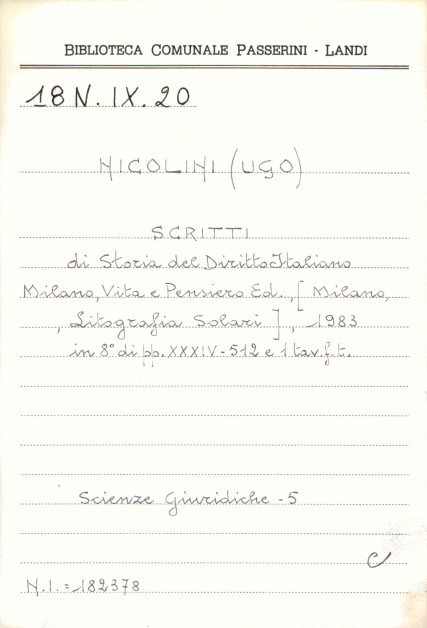 BIBLIOTECA COMUNALE PASSERINI - LANDI
18 N. IX. 20
NICOLINI (UGO)
SCRITTI
di Storia del Diritto Italiano
Milano, Vita e Pensiero Ed., [ Milano,
, Litografia Solari ] , 1983
in 8° di pp. XXXIV-512 e 1 tav. f. t.
Scienze Giuridiche - 5
C
N.I. = 182378